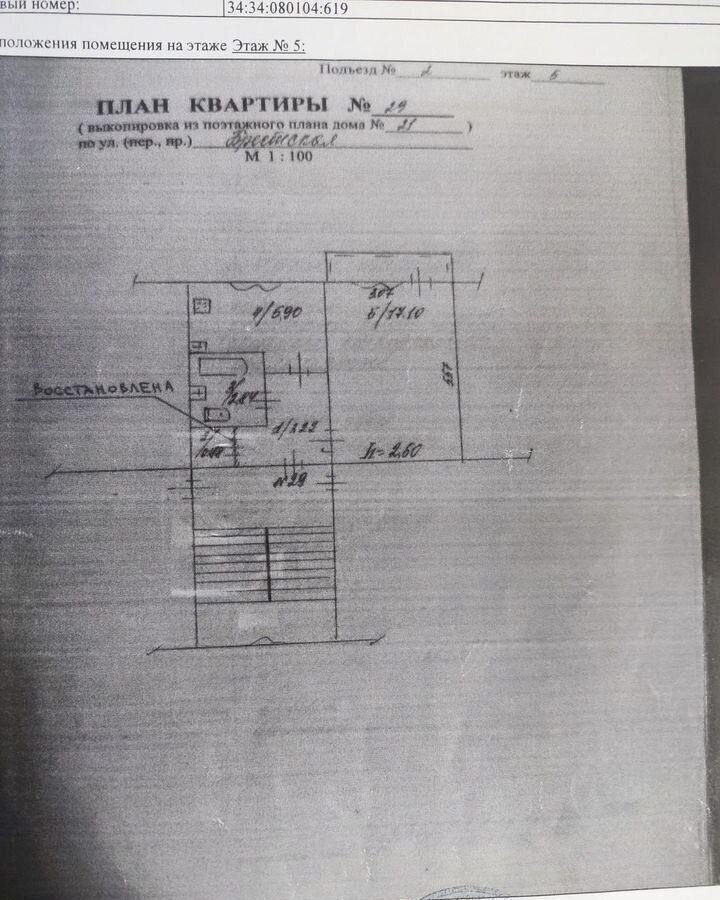 вый номер: 34:34:080104:619
положения помещения на этаже Этаж № 5:
Подъезд № 2 этаж 5
ПЛАН КВАРТИРЫ № 29
( выкопировка из поэтажного плана дома № 21 )
по ул. (пер., пр.) Брестская
М 1 : 100
3.07
4/5.90 5/17.10
5.57
ВОССТАНОВЛЕНА
3/2.84
1/3.22
h=2,50
№29